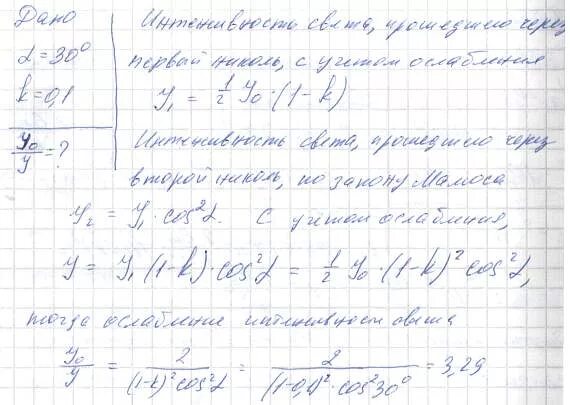 Дано
α = 30°
k = 0,1
У₀/У = ?
Интенсивность света, прошедшего через
первый николь, с учетом ослабления
У₁ = 1/2 У₀ · (1 - k)
Интенсивность света, прошедшего через
второй николь, по закону Малюса
У₂ = У₁ · cos²α. С учётом ослабления,
У = У₁ (1 - k) · cos²α = 1/2 У₀ · (1 - k)² cos²α,
тогда ослабление интенсивности света
У₀/У = 2/((1-k)² cos²α) = 2/((1-0,1)² · cos²30°) = 3,29